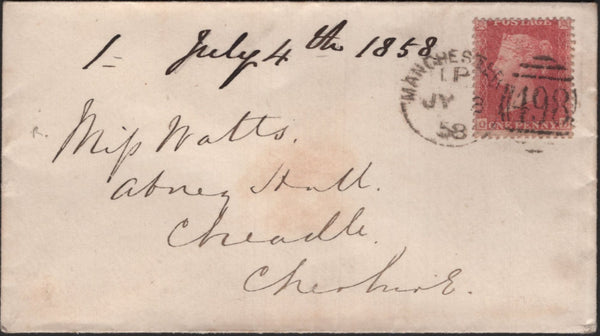 1 - July 4th 1858
POSTAGE
MANCHESTER
1P
JY 8
58
498
ONE PENNY
Miss Watts.
Abney Hall.
Cheadle.
Cheshire.